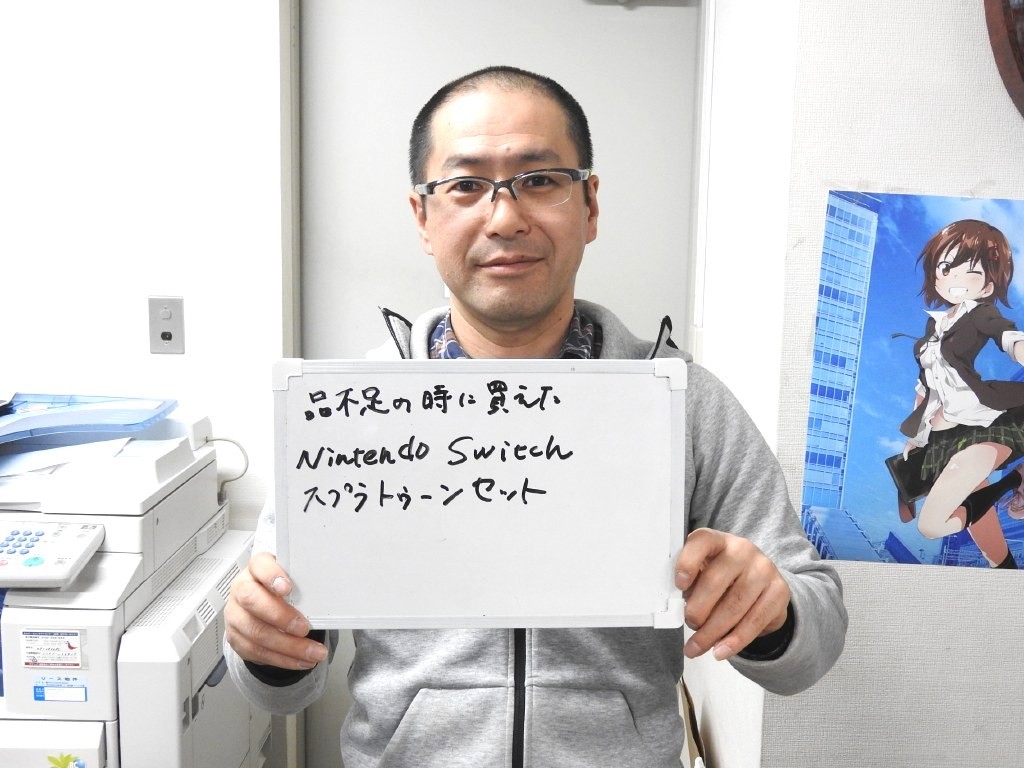 品不足の時に買えた
Nintendo Switch
スプラトゥーンセット